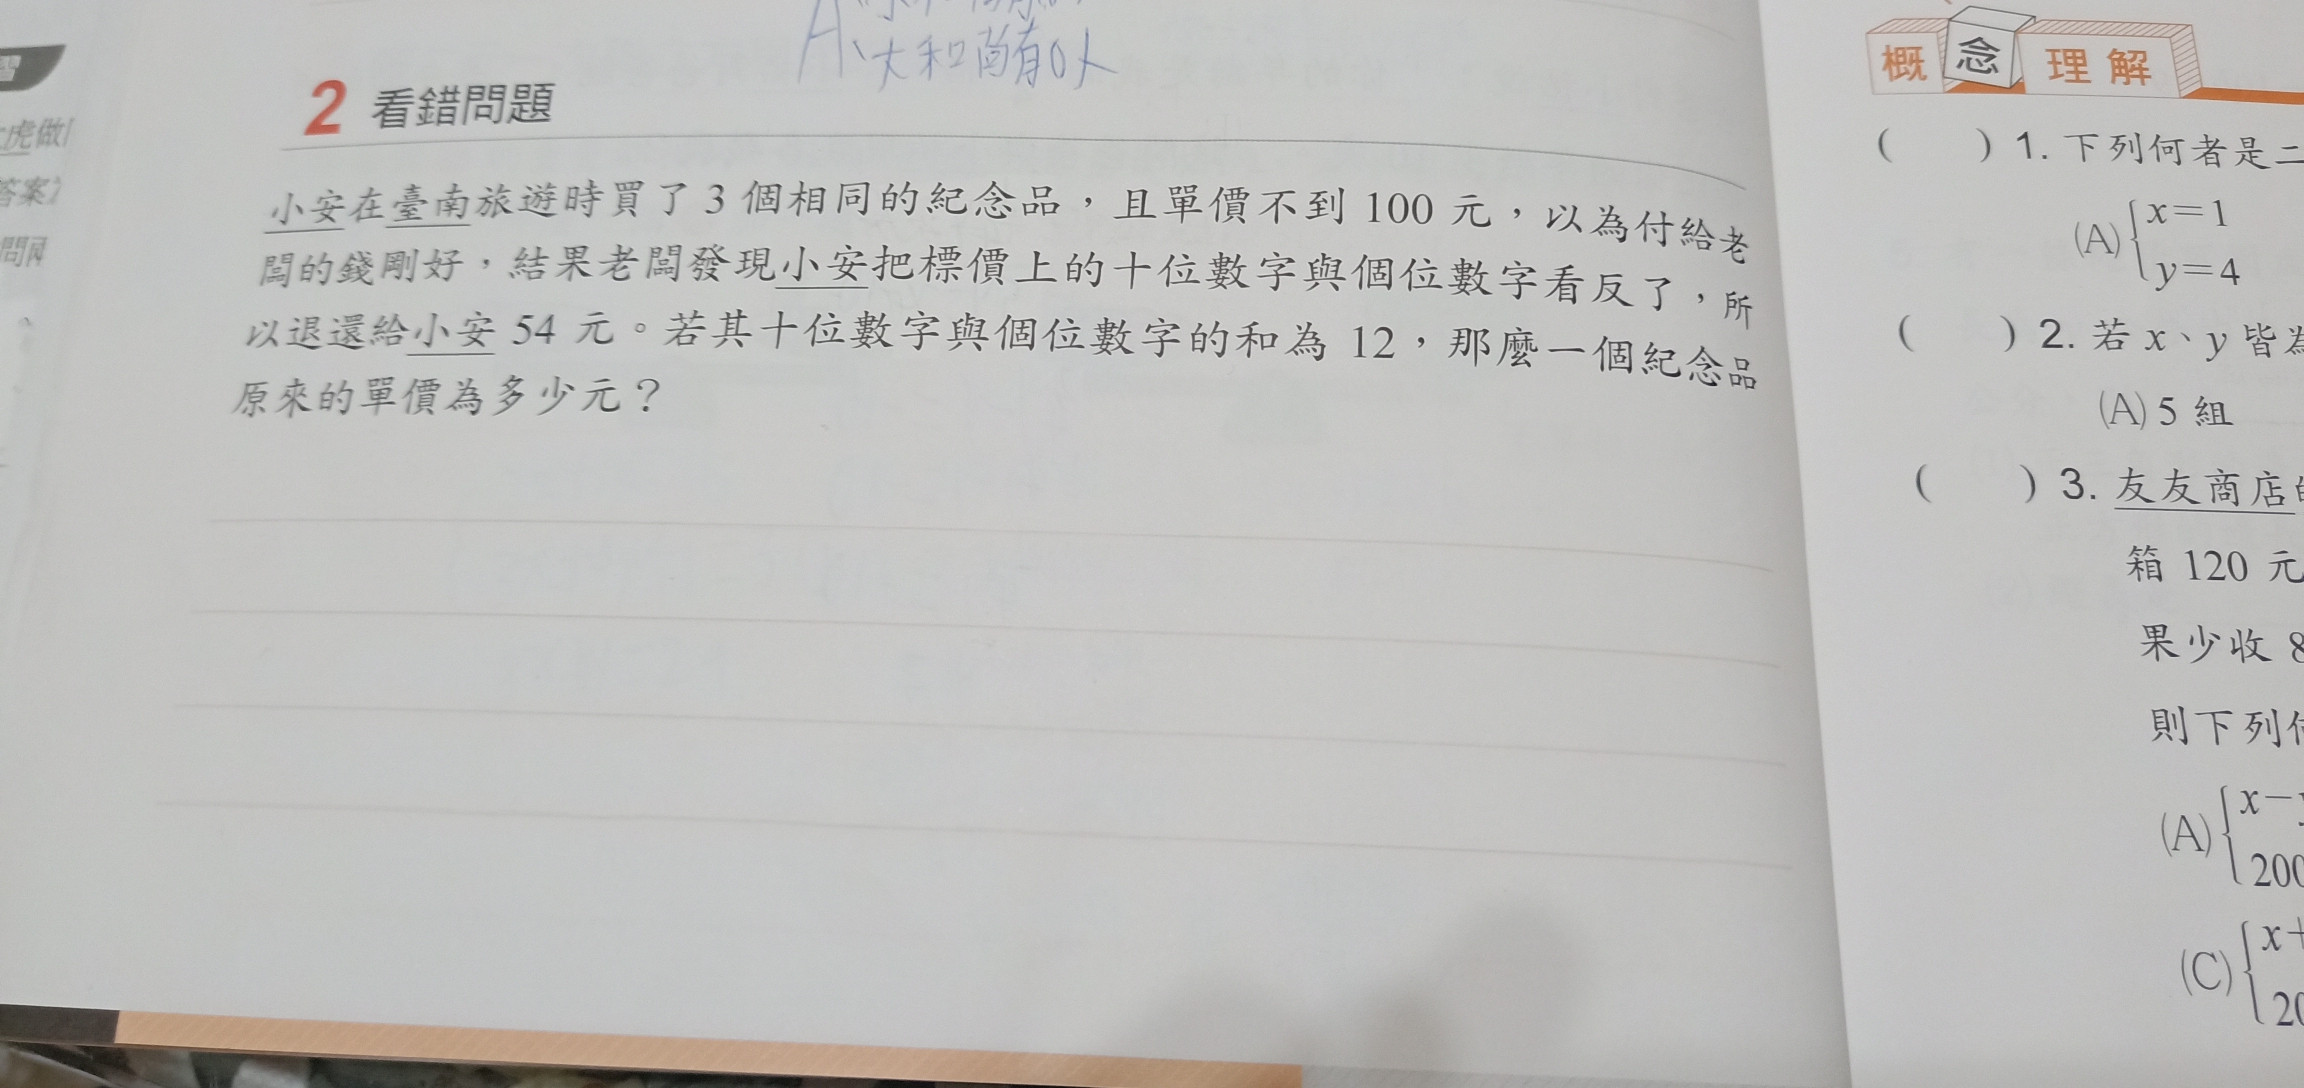 大和尚有01人
2 看錯問題
小安在臺南旅遊時買了 3 個相同的紀念品，且單價不到 100 元，以為付給老
闆的錢剛好，結果老闆發現小安把標價上的十位數字與個位數字看反了，所
以退還給小安 54 元。若其十位數字與個位數字的和為 12，那麼一個紀念品
原來的單價為多少元？
虎做
答案
問
概念理解
( ) 1. 下列何者是二
(A) { x=1
y=4
( ) 2. 若 x、y 皆為
(A) 5 組
( ) 3. 友友商店
箱 120 元
果少收 8
則下列
(A) { x－
200
(C) { x＋
20